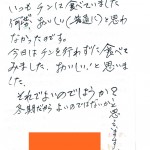 いつもチンして食べていました
何時おいしく(普通に)と思わ
なかったのです。
今日はチンを行わずに食べて
みました、おいしい!と思いま
した。
それでよいのでしょうか?
冬期だからよいのではないか
と思えます